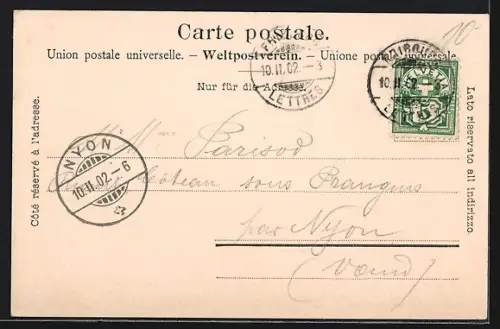 Carte postale.
Union postale universelle. – Weltpostverein. – Unione postale universale.
Nur für die Adresse.
Côté réservé à l'adresse.
Lato riservato all' indirizzo.
10.II.02 – 3
LETTRES
HELVETIA
10.II.02
NYON
10.II.02 – 6
10 –
Parisod
Château sous Prangins
par Nyon
(Vaud)